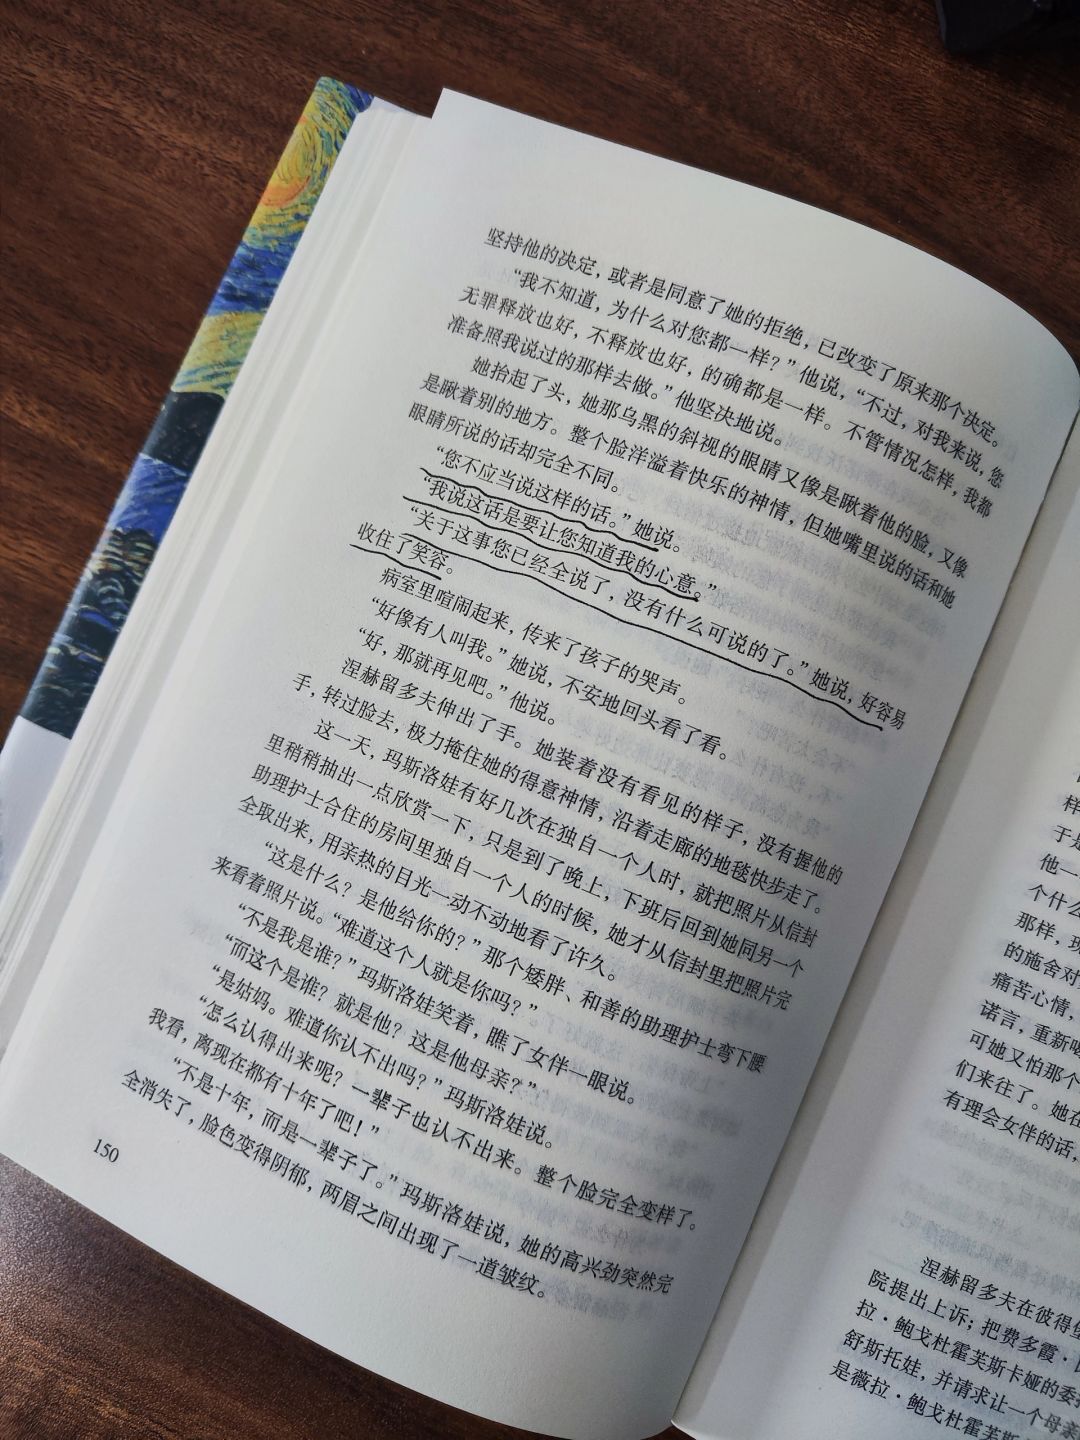 坚持他的决定，或者是同意了她的拒绝，已改变了原来那个决定。
“我不知道，为什么对您都一样？”他说，“不过，对我来说，您
无罪释放也好，不释放也好，的确都是一样。不管情况怎样，我都
准备照我说过的那样去做。”他坚决地说。
她抬起了头，她那乌黑的斜视的眼睛又像是瞅着他的脸，又像
是瞅着别的地方。整个脸洋溢着快乐的神情，但她嘴里说的话和她
眼睛所说的话却完全不同。
“您不应当说这样的话。”她说。
“我说这话是要让您知道我的心意。”
“关于这事您已经全说了，没有什么可说的了。”她说，好容易
收住了笑容。
病室里喧闹起来，传来了孩子的哭声。
“好像有人叫我。”她说，不安地回头看了看。
“好，那就再见吧。”他说。
涅赫留多夫伸出了手。她装着没有看见的样子，没有握他的
手，转过脸去，极力掩住她的得意神情，沿着走廊的地毯快步走了。
这一天，玛斯洛娃有好几次在独自一个人时，就把照片从信封
里稍稍抽出一点欣赏一下，只是到了晚上，下班后回到她同另一个
助理护士合住的房间里独自一个人的时候，她才从信封里把照片完
全取出来，用亲热的目光一动不动地看了许久。
“这是什么？是他给你的？”那个矮胖、和善的助理护士弯下腰
来看着照片说。“难道这个人就是你吗？”
“不是我是谁？”玛斯洛娃笑着，瞧了女伴一眼说。
“而这个是谁？就是他？这是他母亲？”
“是姑妈。难道你认不出吗？”玛斯洛娃说。
“怎么认得出来呢？一辈子也认不出来。整个脸完全变样了。
我看，离现在都有十年了吧！”
“不是十年，而是一辈子了。”玛斯洛娃说，她的高兴劲突然完
全消失了，脸色变得阴郁，两眉之间出现了一道皱纹。
150
样
于是
他一
个什么
那样，
的施舍对
痛苦心情，
诺言，重新喝
可她又怕那个
们来往了。她在
有理会女伴的话，
涅赫留多夫在彼得堡
院提出上诉；把费多霞·
拉·鲍戈杜霍芙斯卡娅的委
舒斯托娃，并请求让一个母亲
是薇拉·鲍戈杜霍芙斯